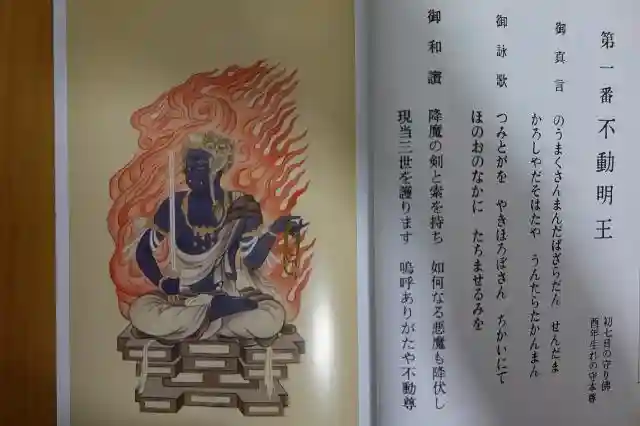 第一番 不動明王
初七日の守り佛
酉年生れの守本尊
御真言 のうまくさんまんだばざらだん せんだま
かろしやだそはたや うんたらたかんまん
御詠歌 つみとがを やきほろぼさん ちかいにて
ほのおのなかに たちませるみを
御和讃 降魔の剣と索を持ち 如何なる悪魔も降伏し
現当三世を護ります 嗚呼ありがたや不動尊